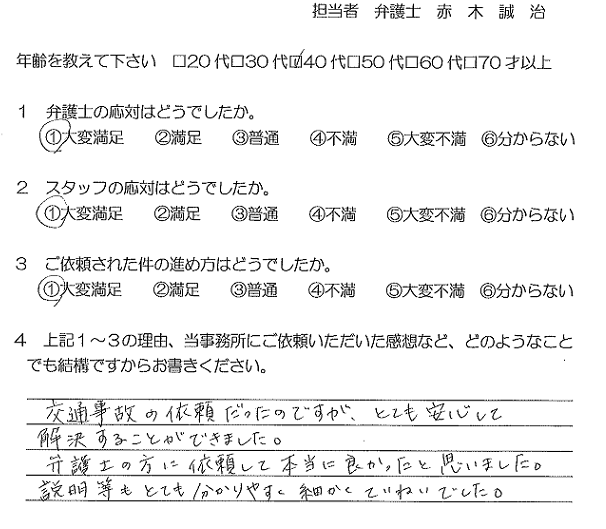 担当者 弁護士 赤 木 誠 治
年齢を教えて下さい □20代□30代☑40代□50代□60代□70才以上
1 弁護士の応対はどうでしたか。
①大変満足 ②満足 ③普通 ④不満 ⑤大変不満 ⑥分からない
2 スタッフの応対はどうでしたか。
①大変満足 ②満足 ③普通 ④不満 ⑤大変不満 ⑥分からない
3 ご依頼された件の進め方はどうでしたか。
①大変満足 ②満足 ③普通 ④不満 ⑤大変不満 ⑥分からない
4 上記1～3の理由、当事務所にご依頼いただいた感想など、どのようなこと
でも結構ですからお書きください。
交通事故の依頼だったのですが、とても安心して
解決することができました。
弁護士の方に依頼して本当に良かったと思いました。
説明等もとても分かりやすく細かくていねいでした。